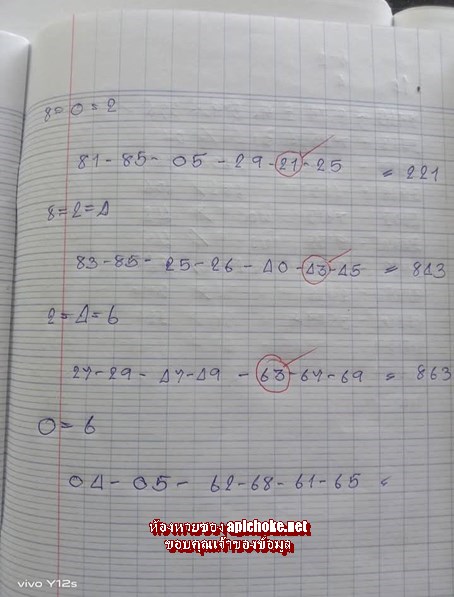 8=0=2
81-85-05-29-21-25 = 221
8=2=4
83-85-25-26-40-43-45 = 843
2=4=6
27-29-47-49-63-67-69 = 863
0=6
04-05-62-68-61-65 =
ห้องหวยของ apichoke.net
ขอบคุณเจ้าของข้อมูล
vivo Y12s